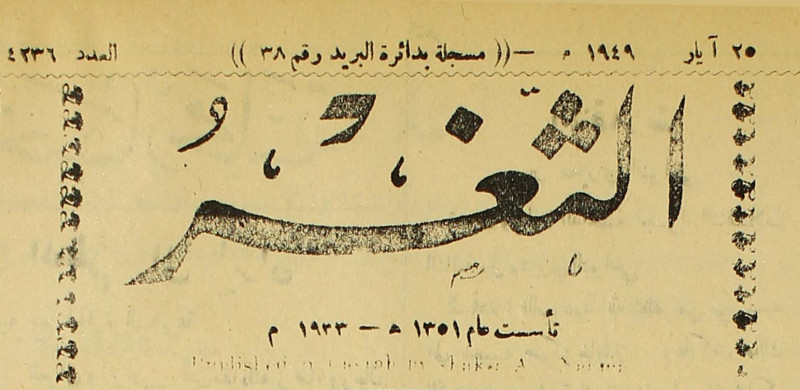 ٢٥ آيار ١٩٤٩ م —(( مسجلة بدائرة البريد رقم ٣٨ )) العدد ٤٢٣٦
الثَّغْرُ
تأسست عام ١٣٥١ ه — ١٩٣٣ م